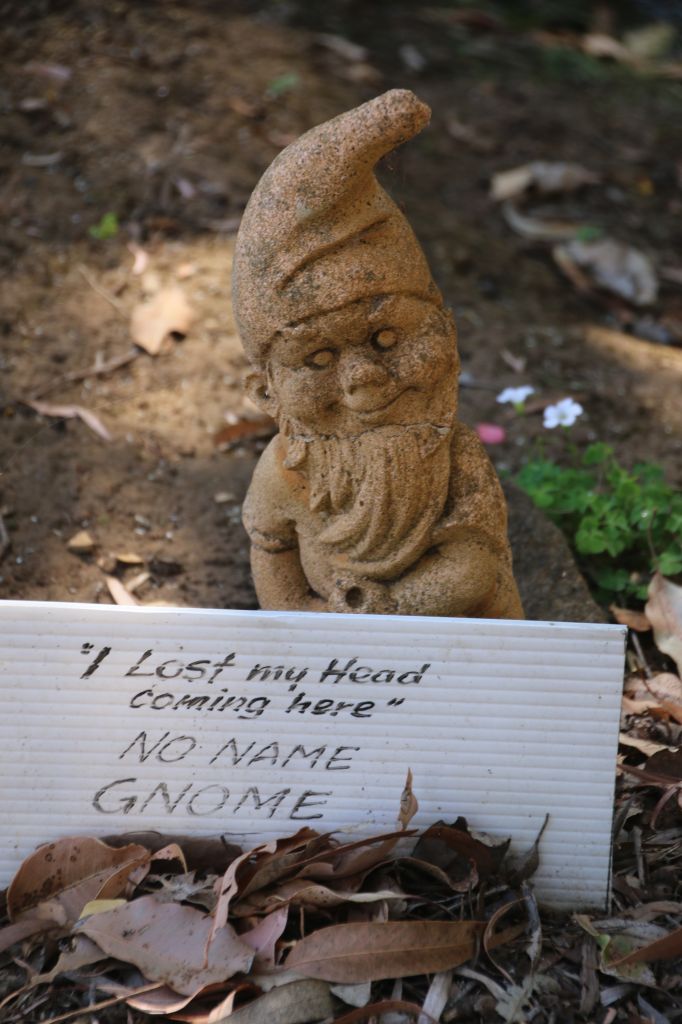 "I Lost my Head
coming here"
NO NAME
GNOME